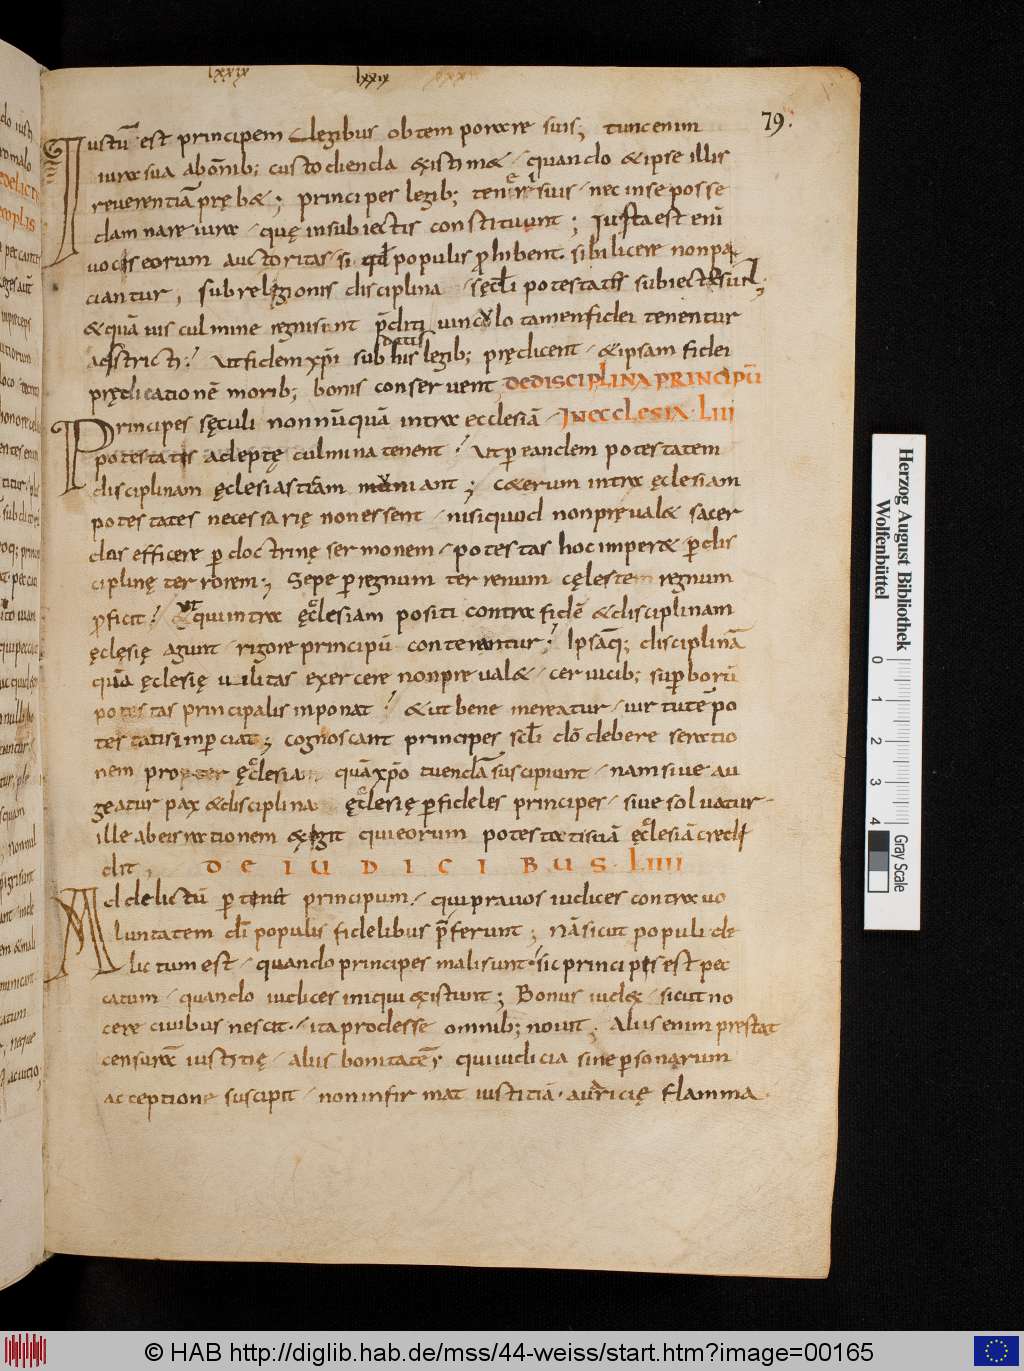 lxxix lxxix
79.
Iustū est principem legibus obtemperare suis; tunc enim
iura sua ab omīb; custodienda existimet, quando & ipse illis
reverentiā pręb&; principes legib; teneri suis, nec in se posse
damnare iura, quę in subiectis constituunt; Iusta est enī
vocis eorum auctoritas, si qđ populis ꝓhibent, sibi licere non pa
ciantur, sub religionis disciplina, sęcłi potestates subiectę sunt;
& quāvis culmine regni sunt p̄diti vinculo tamen fidei tenentur
adstricti? ut fidem xp̄i suis legib; prędicent, & ipsam fidei
prędicationē morib; bonis conservent, DE DISCIPLINA PRINCIPŪ
Principes sęculi nonnūquā intra ecclesiā, IN ECCLESIA. LIII
potestatis adeptę culmina tenent? ut ꝑ eandem potestatem
disciplinam ęclesiasticam muniant; cęterum intra ęclesiam
potestates necessarię non essent, nisi quod non pręval& sacer
dos efficere ꝑ doctrinę sermonem, potestas hoc imper& ꝑ dis
ciplinę terrorem; Sepe ꝑ regnum terrenum cęleste regnum
ꝓficit? ut qui intra ęcclesiam positi contra fidē & disciplinam
ęclęsię agunt, rigore principū conterantur? Ipsāq; disciplinā
quā ęclesię utilitas exercere non preval&, cervicib; suꝑborū
potestas principalis inponat? & ut bene mereatur, virtutē po
testatis imꝑciat; cognoscant principes scłi dō debere ratio
nem propter ęcclesiam quā xp̄o tuendā suscipiunt, nam sive au
geatur pax & disciplina ęcclesię ꝑ fideles principes, sive solvatur,
ille ab eis rationem exigit qui eorum potestati suā ęcclesiā credi
dit, DE IUDICIBUS. LIIII
Ad delictū ꝑtinet principum, qui pravos iudices contra vo
luntatem dī populis fidelibus p̄ferunt; Nā sicut populi de
lictum est, quando principes mali sunt, sic principis est pec
catum, quando iudices iniqui existunt; Bonus iudex, sicut no
cere civibus nescit, ita prodesse omnib; novit; Alius enim prestat
censurā iustitię, alius bonitatē; qui iudicia sine ꝑsonarum
acceptione suscipit, non infirmat iustitiā avaricię flamma.
Herzog August Bibliothek
Wolfenbüttel
0 1 2 3 4
Gray Scale
© HAB http://diglib.hab.de/mss/44-weiss/start.htm?image=00165